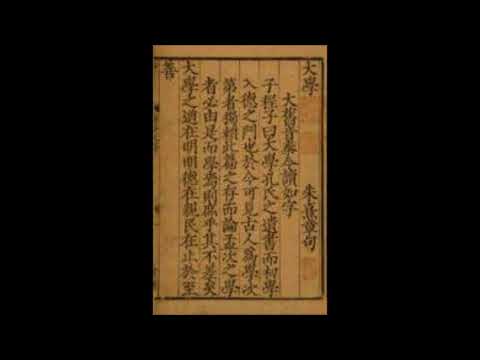 大學 朱熹章句
大舊音泰今讀如字
子程子曰大學孔氏之遺書而初學
入德之門也於今可見古人爲學次
第者獨賴此篇之存而論孟次之學
者必由是而學焉則庶乎其不差矣
大學之道在明明德在親民在止於至
善